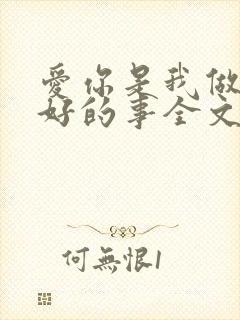 愛你是我做
好的事全文
何無恨1